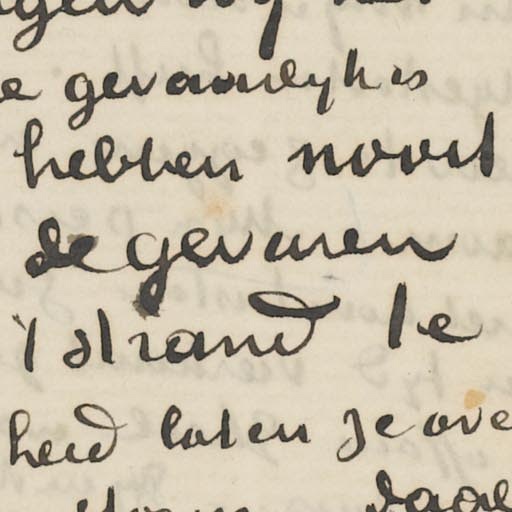 gevaarlyk is
hebben nooit
de gevaren
't strand te
heid laten Je ove